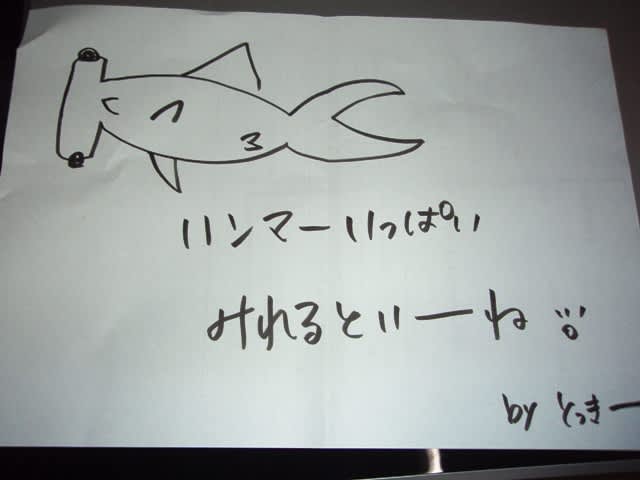 ハンマーいっぱい
みれるといーね
by とっきー